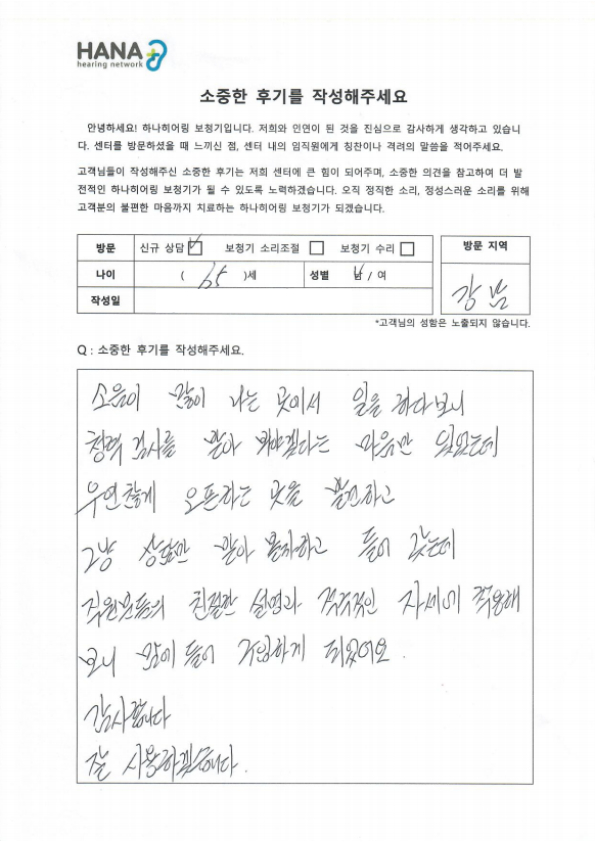 HANA
hearing network
소중한 후기를 작성해주세요
안녕하세요! 하나히어링 보청기입니다. 저희와 인연이 된 것을 진심으로 감사하게 생각하고 있습니
다. 센터를 방문하셨을 때 느끼신 점, 센터 내의 임직원에게 칭찬이나 격려의 말씀을 적어주세요.
고객님들이 작성해주신 소중한 후기는 저희 센터에 큰 힘이 되어주며, 소중한 의견을 참고하여 더 발
전적인 하나히어링 보청기가 될 수 있도록 노력하겠습니다. 오직 정직한 소리, 정성스러운 소리를 위해
고객분의 불편한 마음까지 치료하는 하나히어링 보청기가 되겠습니다.
방문 신규 상담 보청기 소리조절 보청기 수리 방문 지역
나이 ( 65 )세 성별 남 / 여 강남
작성일
*고객님의 성함은 노출되지 않습니다.
Q : 소중한 후기를 작성해주세요.
소음이 많이 나는 곳에서 일을 하다보니
청력 검사를 받아 봐야겠다는 마음만 있었는데
우연찮게 오픈하는 곳을 발견하고
그냥 상담만 받아 볼까하고 들어 갔는데
직원분들의 친절한 설명과 적극적인 자세에 착용해
보니 맘에 들어 구입하게 되었어요.
감사합니다
잘 사용하겠습니다.